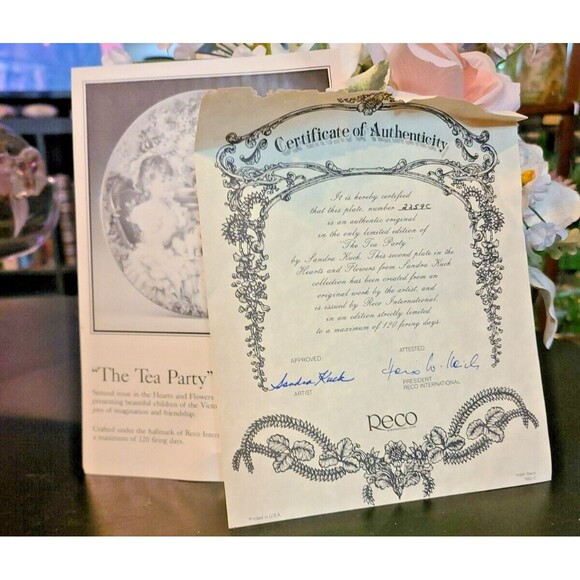 Certificate of Authenticity
It is hereby certified
that this plate, number 2259C
is an authentic original
in the only limited edition of
The Tea Party
by Sandra Kuck. This second plate in the
Hearts and Flowers from Sandra Kuck
collection has been created from an
original work by the artist, and
is issued by Reco International,
in an edition strictly limited
to a maximum of 120 firing days.
APPROVED:
ATTESTED:
Sandra Kuck
ARTIST
PRESIDENT
RECO INTERNATIONAL
Reco
Printed in U.S.A.
"The Tea Party"
Second issue in the Hearts and Flowers
presenting beautiful children of the Victo
joys of imagination and friendship.
Crafted under the hallmark of Reco Inter
a maximum of 120 firing days.